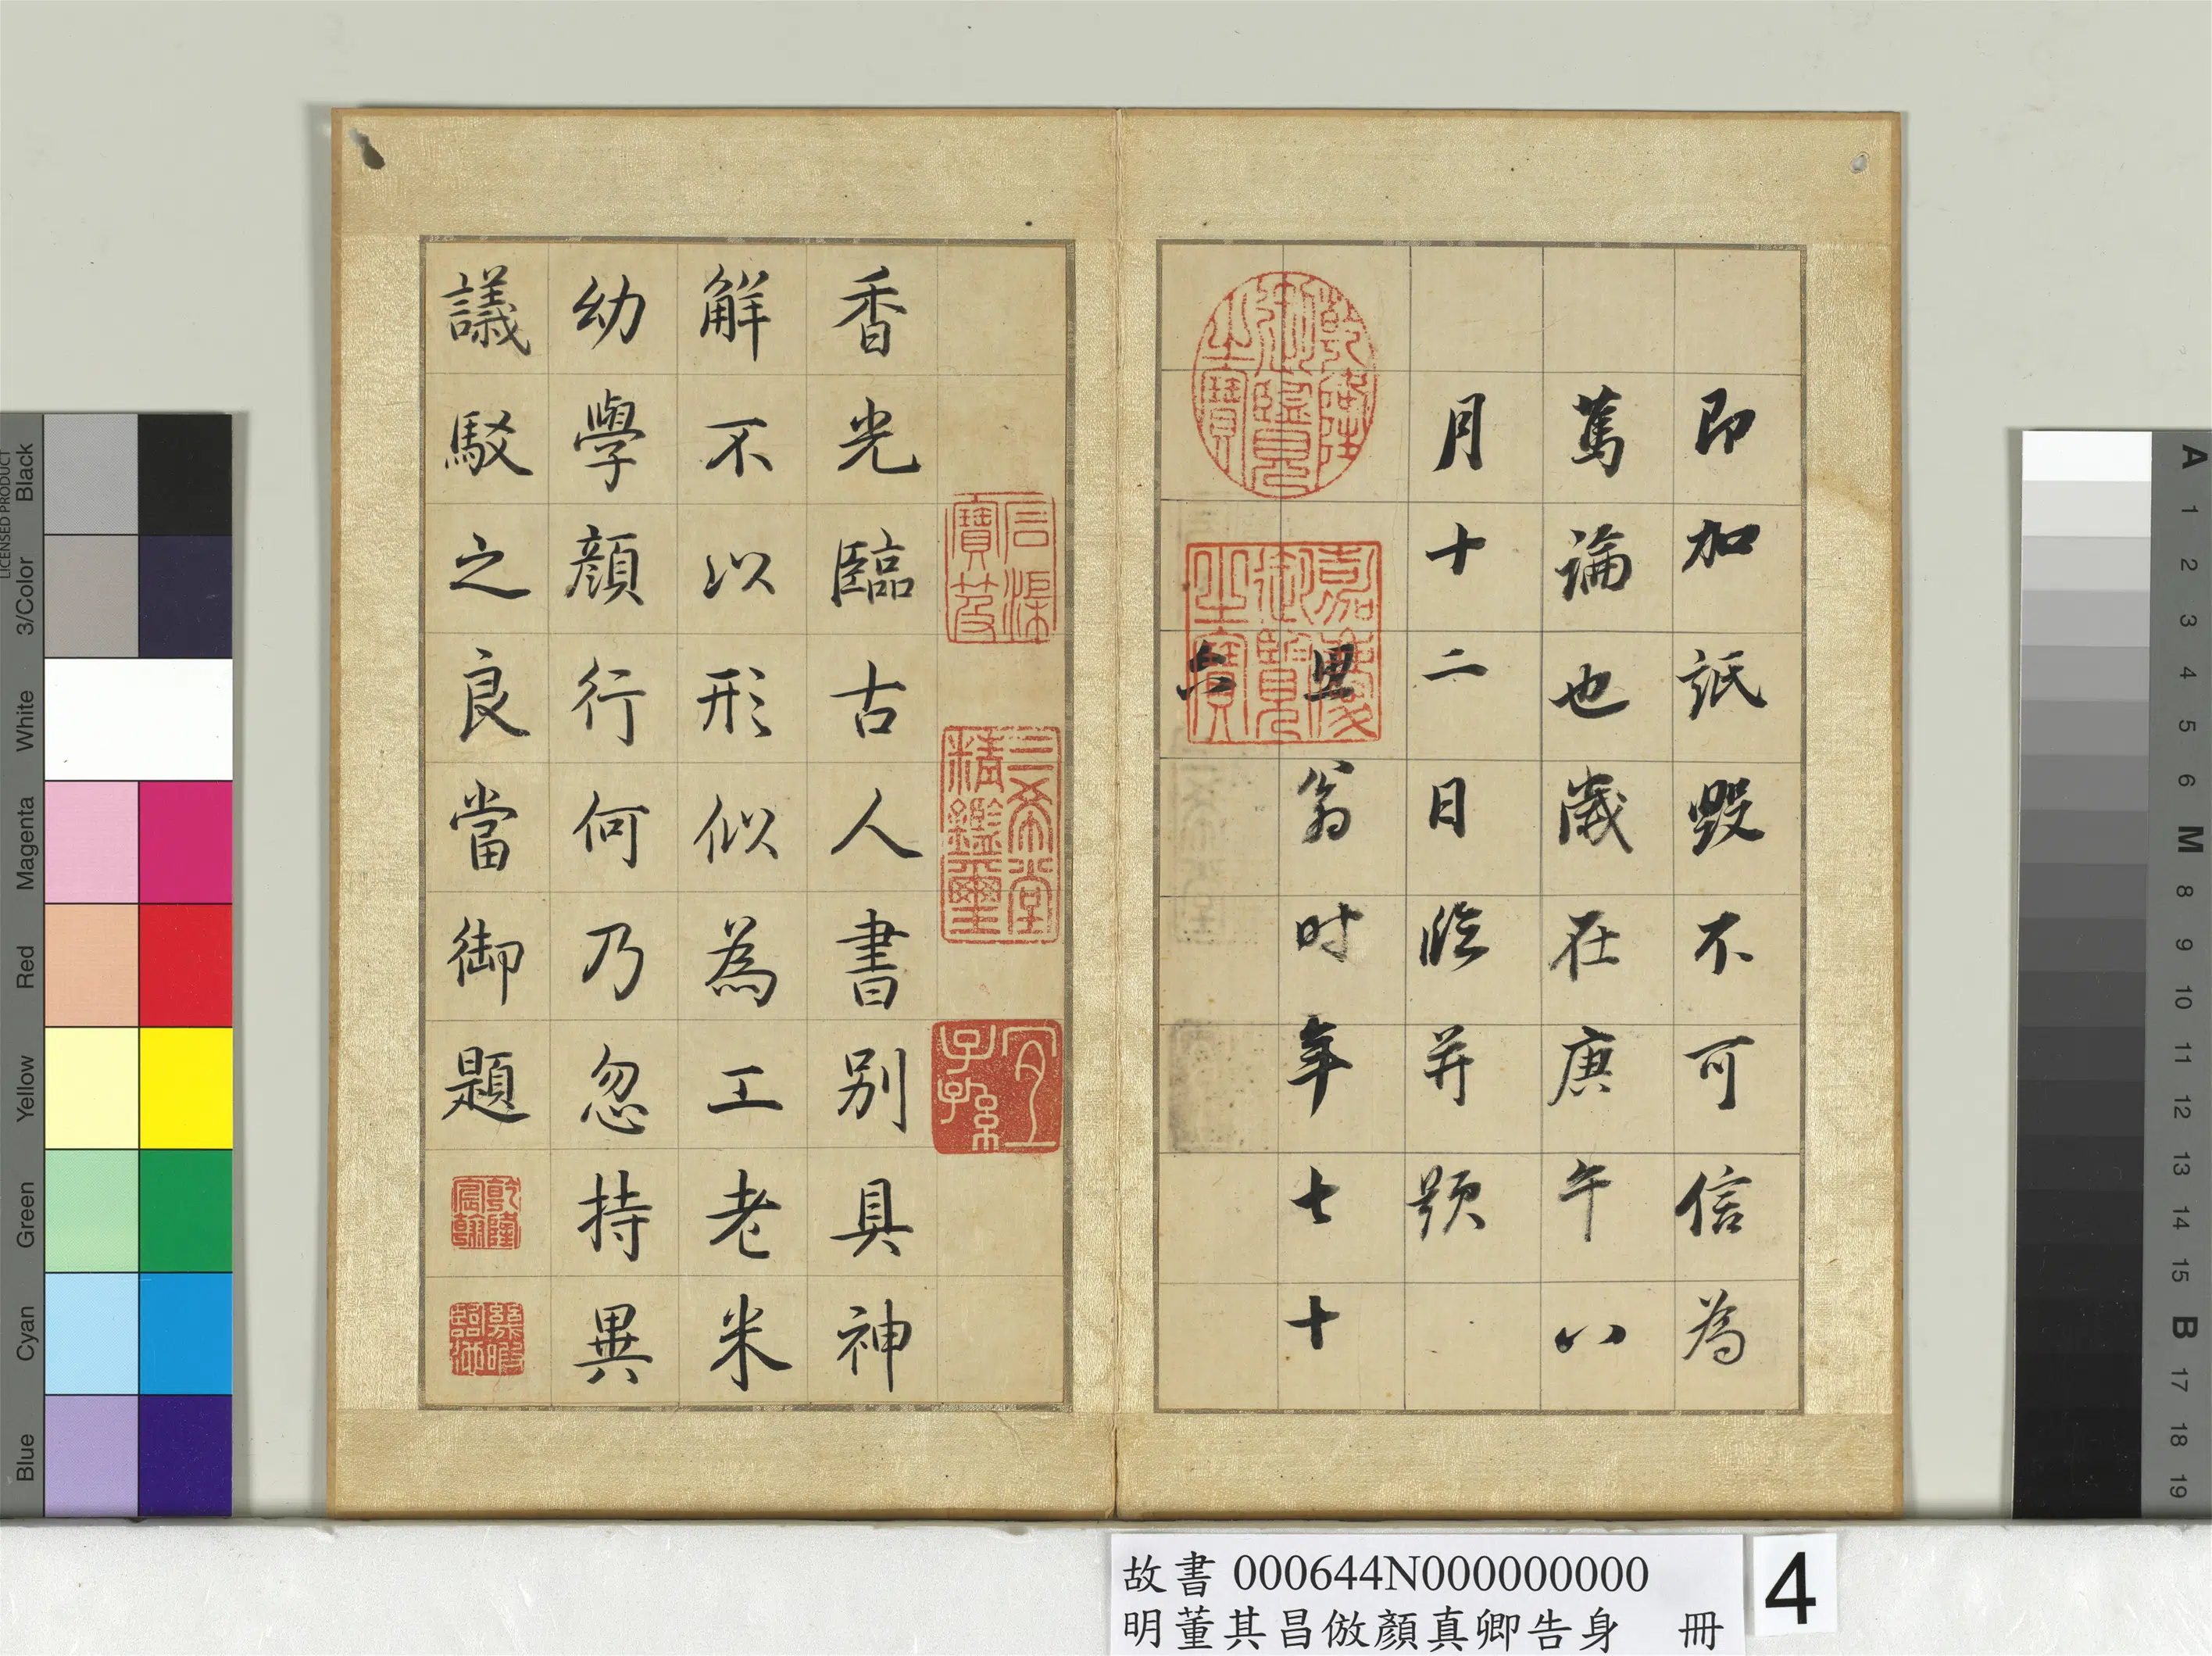 即加詆毀不可信為
篤論也歲在庚午八
月十二日臨并題
思翁时年七十
乾隆御覽之寶
嘉慶御覽之寶
三希堂精鑑璽
宜子孫
香光臨古人書別具神
解不以形似為工老米
幼學顏行何乃忽持異
議駁之良當御題
乾隆宸翰
故書 000644N000000000
明董其昌倣顏真卿告身 冊
4
LICENSED PRODUCT
Black
3/Color
White
Magenta
Red
Yellow
Green
Cyan
Blue
A
1
2
3
4
5
6
M
8
9
10
11
12
13
14
15
B
17
18
19